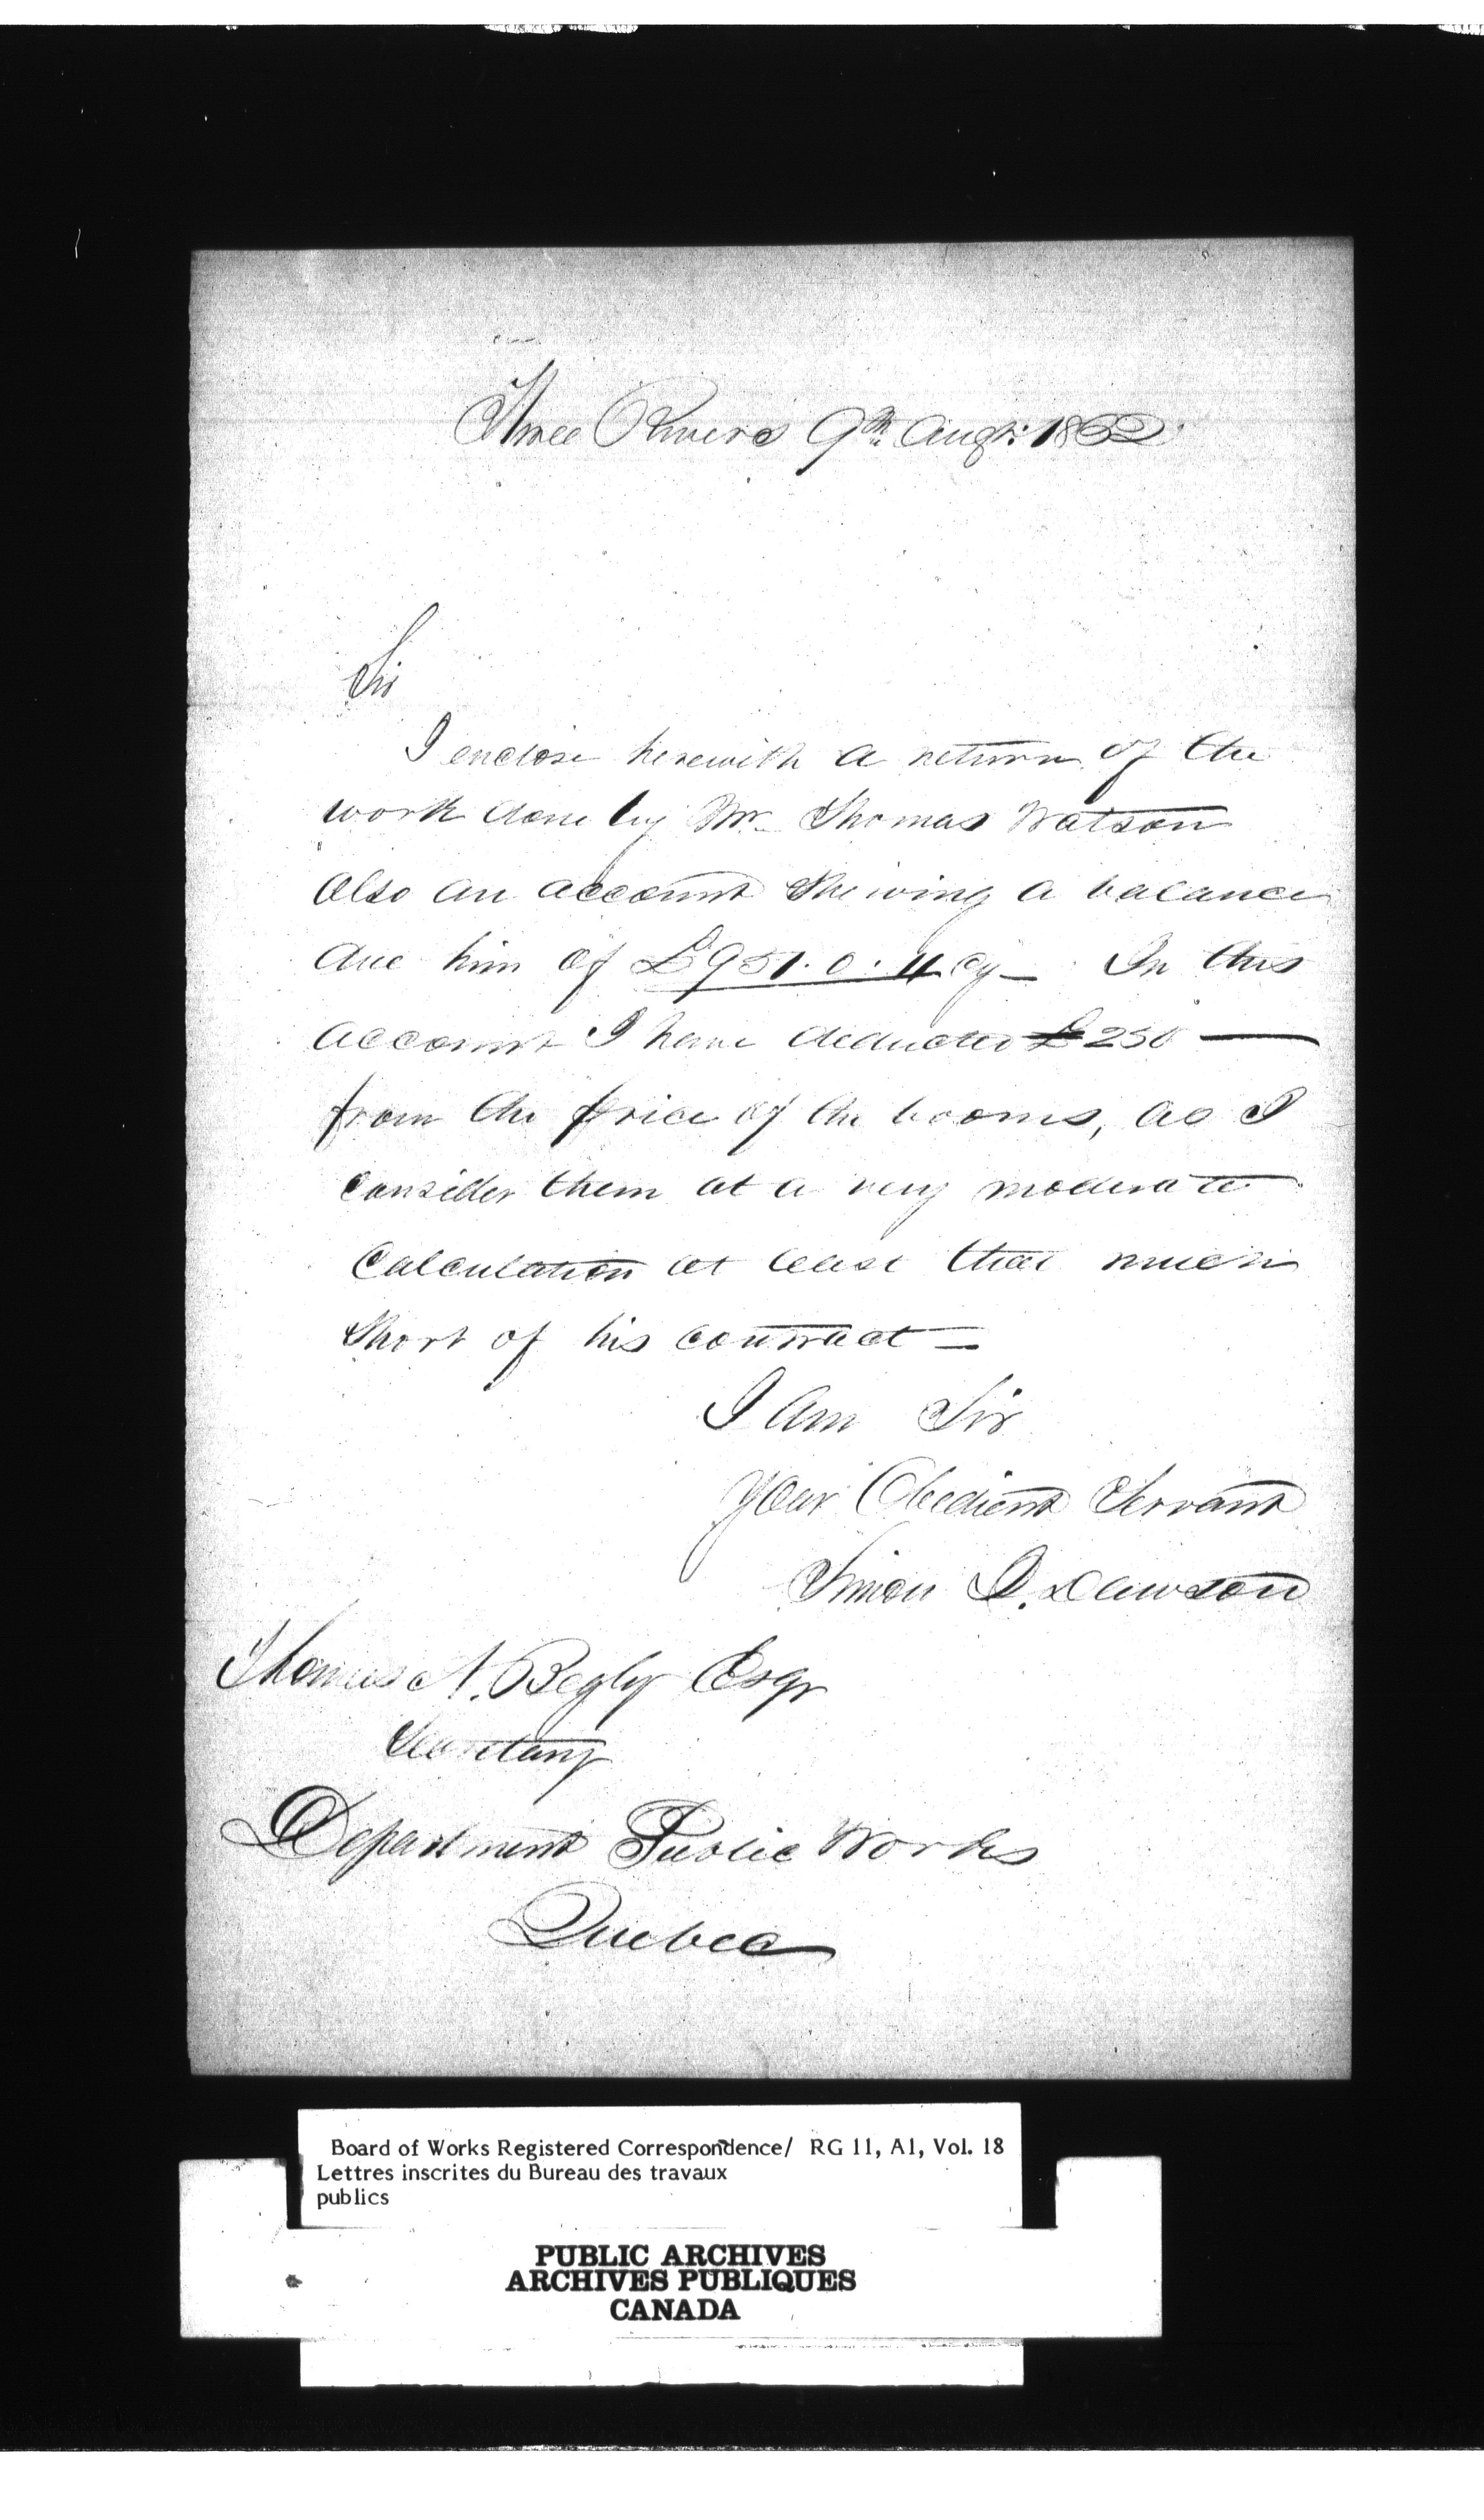 Three Rivers 9th Augt: 1852
Sir
I enclose herewith a return of the
work done by Mr Thomas Watson
Also an account Shewing a balance
due him of £951.0.4 Cy — In this
account I have deducted £250 —
from the price of the booms, as I
consider them at a very moderate
Calculation at least that much
Short of his contract —
I Am Sir
Your Obedient Servant
Simon J. Dawson
Thomas A. Begly Esqr
Secretary
Department Public Works
Quebec
Board of Works Registered Correspondence/ RG 11, A1, Vol. 18
Lettres inscrites du Bureau des travaux
publics
PUBLIC ARCHIVES
ARCHIVES PUBLIQUES
CANADA